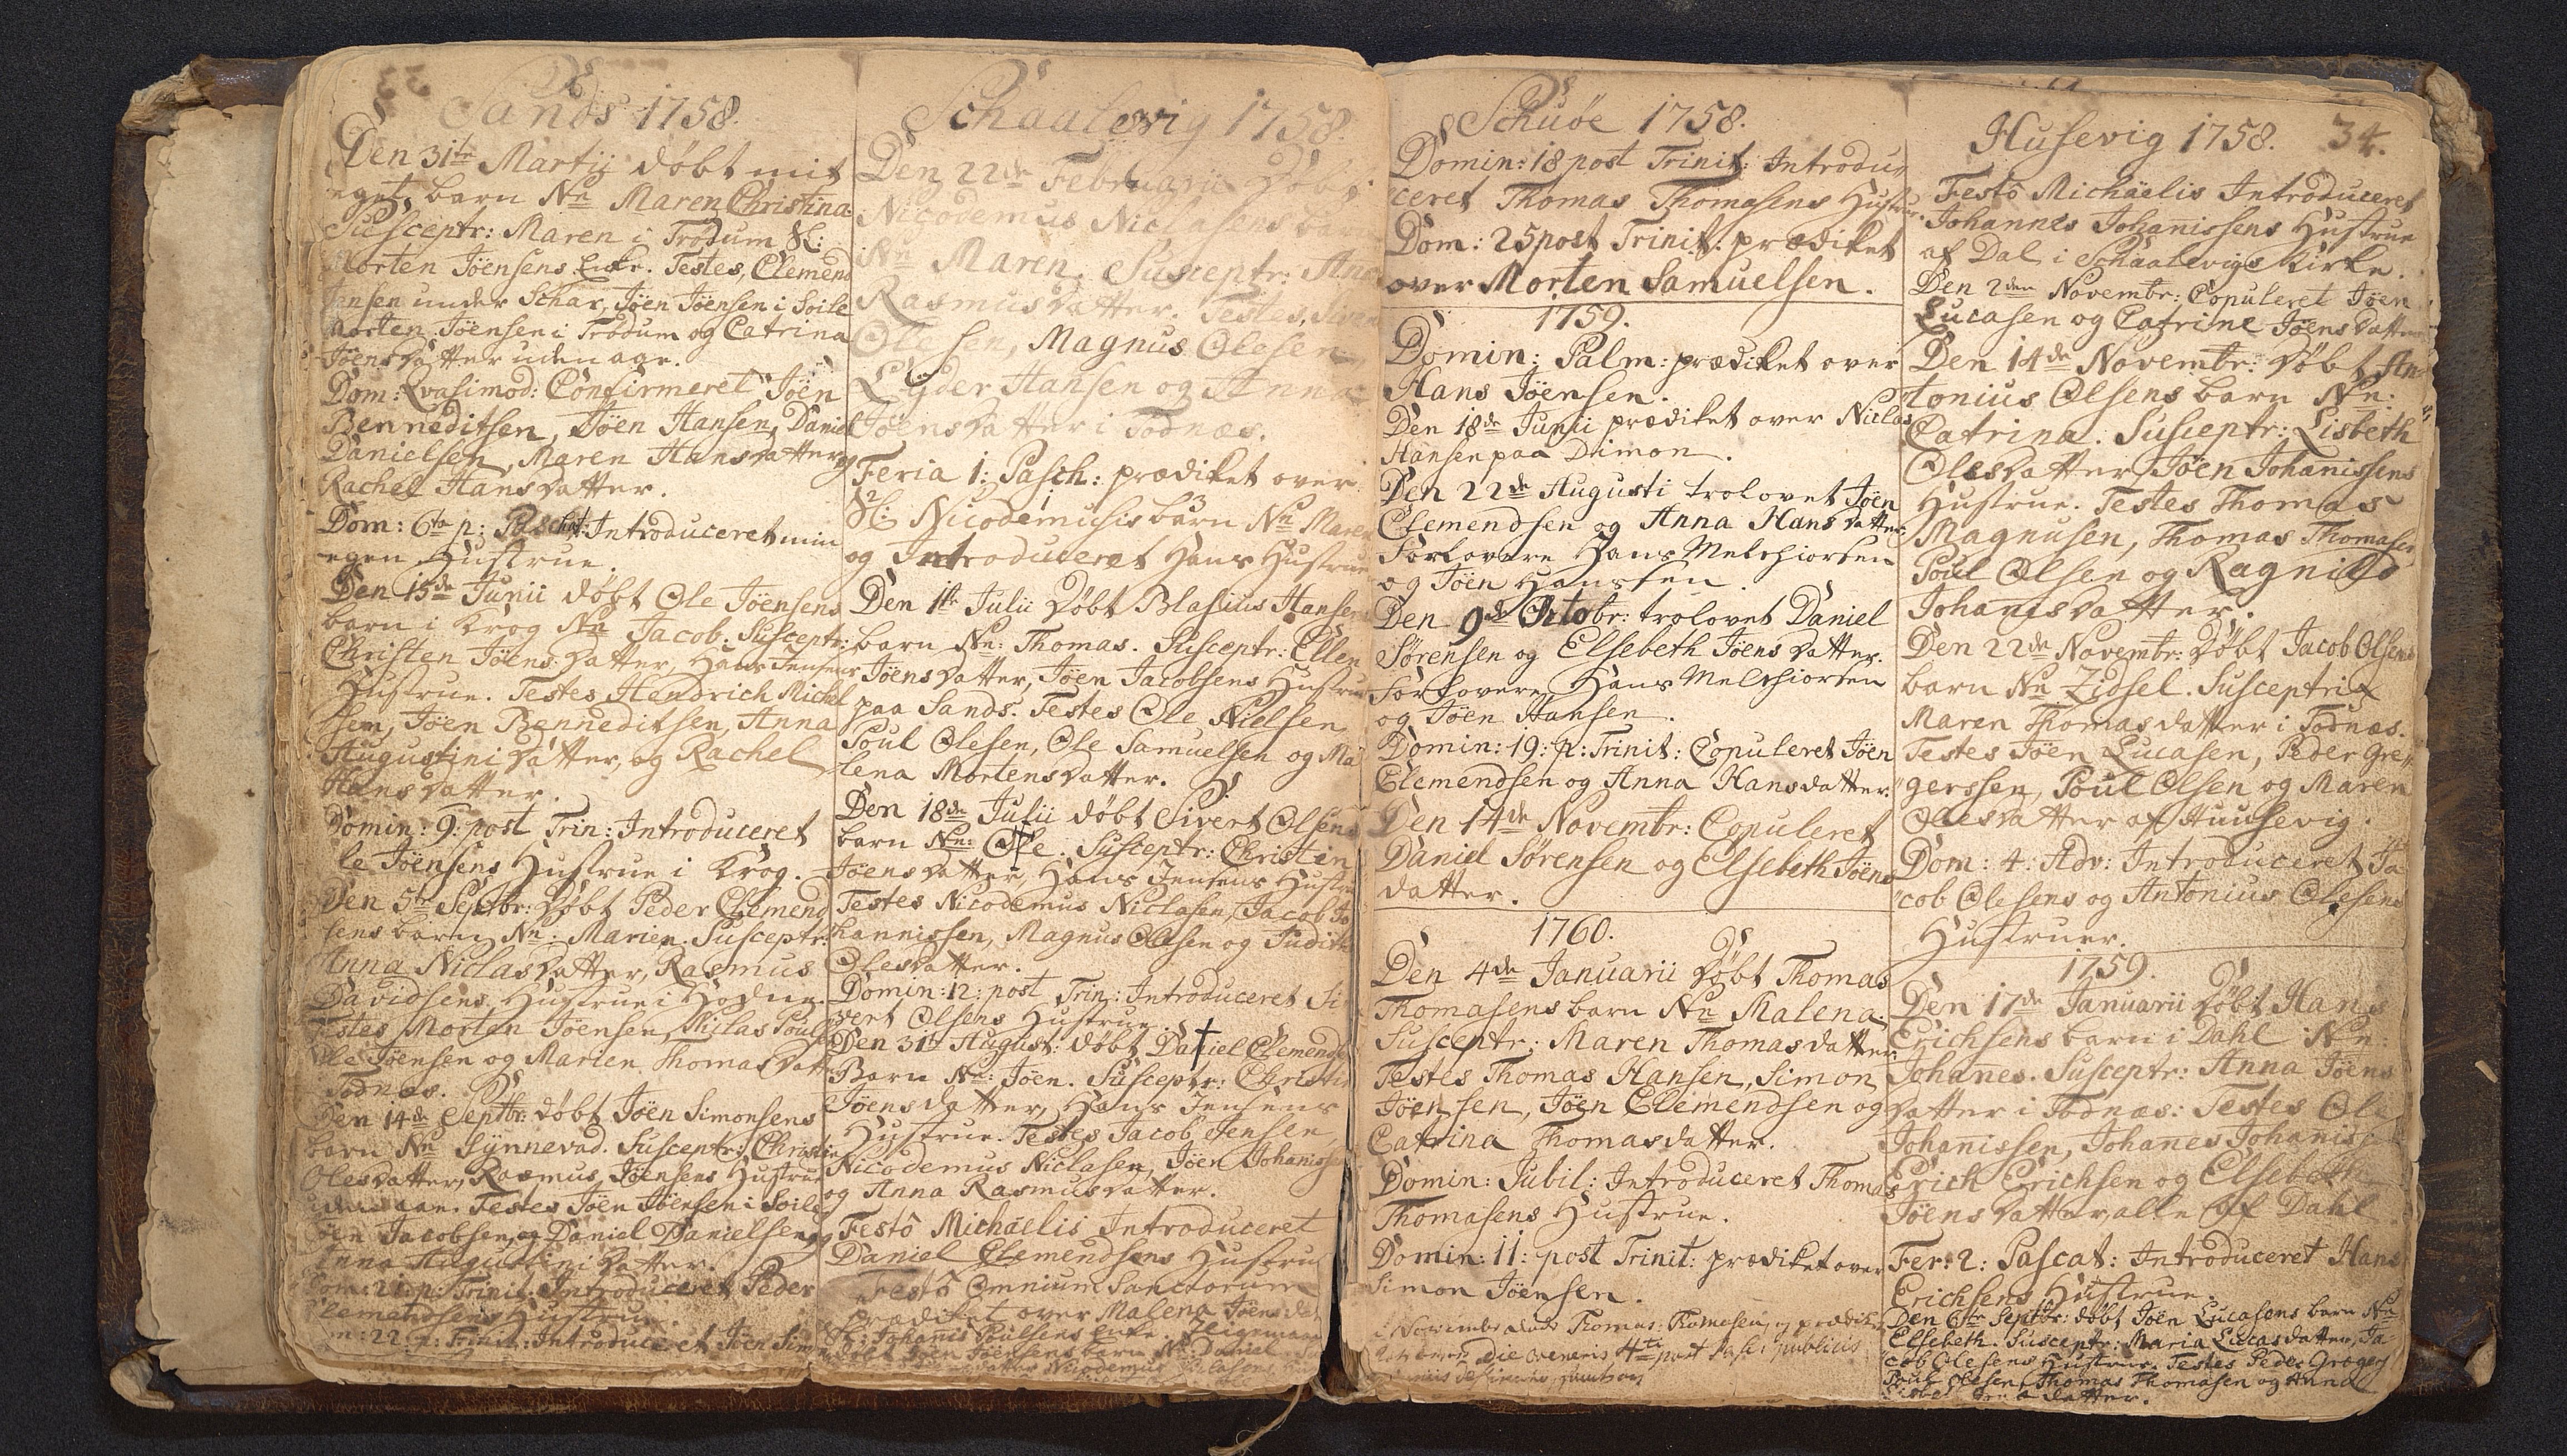 33
Sands 1758.
Den 31te Martij døbt mit
eget barn Nn Maren Christina
Susceptr: Maren i Trødum Sl:
Morten Jöensens Enke. Testes, Clemend
Jensen under Schar, Jöen Jöensen i Soile
Morten Jöensen i Trødum og Catrina
Jöensdatter uden aae.
Dom: Qvasimod: Confirmeret Jöen
Benneditsen, Jöen Hansen, Daniel
Danielsen, Maren Hansdatter og
Rachel Hansdatter.
Dom: 6ta p: Pasch: Introduceret min
egen Hustrue.
Den 15de Junii døbt Ole Jöensens
barn i Krog Nn Jacob. Susceptr:
Christen Jöensdatter, Hans Jensens
Hustrue. Testes Hendrich Michel
sen, Jöen Benneditsen, Anna
Augustini datter, og Rachel
Hansdatter.
Domin: 9: post Trin: Introduceret
le Jöensens Hustrue i Krog.
Den 5te Septbr: døbt Peder Clemend
sens barn Nn: Marien. Susceptr:
Anna Niclasdatter, Rasmus
Davidsens Hustrue i
Testes Morten Jöensen, Niclas Pouls
Ole Jöensen og Marien Thomasdatt
Todnæs.
Den 14de Septbr: døbt Jöen Simonsens
barn Nn Synnevad. Susceptr: Christin
Olesdatter, Rasmus Jöensens Hustrue
uden aae. Testes Jöen Jöensen i Soile
Jöen Jacobsen, og Daniel Danielsen og
Anna Augustini datter.
Dom: 21: p: Trinit: Introduceret Peder
Clemendsens Hustrue.
m: 22: p: Trinit: Introduceret Jöen Simon
Schaalevig 1758.
Den 22de Februarii døbt
Nicodemus Niclasens barn
Nn Maren. Susceptr: Ane
Rasmusdatter. Testes, Siver
Olesen, Magnus Olesen
Lyder Hansen og Anna
Jöensdatter i Todnæs.
Feria 1: Pasch: prædiket over
Sl: Nicodemusis barn Nn Maren
og Introduceret Hans Hustrue
Den 11te Julii døbt Blasius Hansens
barn Nn: Thomas. Susceptr: Ellen
Jöensdatter, Jöen Jacobsens Hustrue
paa Sands. Testes Ole Nielsen
Poul Olesen, Ole Samuelsen og Ma
lena Mortensdatter.
Den 18de Julii døbt Sivert Olsens
barn Nn: Ole. Susceptr: Christin
Jöensdatter, Hans Jensens Hustrue
Testes Nicodemus Niclasen, Jacob Jo
hannissen, Magnus Olesen og Judith
Olesdatter.
Domin: 12: post Trin: Introduceret Si
vert Olsens Hustrue.
Den 31te August: døbt Daniel Clemends
Barn Nn: Jöen. Susceptr: Christin
Jöensdatter, Hans Jensens
Hustrue. Testes Jacob Jensen,
Nicodemus Niclasen, Jöen Johanissen
og Anna Rasmusdatter.
Festô Michaelis Introduceret
Daniel Clemendsens Hustrue
Festô Omnium Sanctorum
prædiket over Malena Jöensdat
Sl: Johanis Poulsens Enke. Zeigemaan
døbt Jöen Jöensens barn Nn: Daniel
datter Nicodemus Niclasen
Schuöe 1758.
Domin: 18 post Trinit: Introdu
ceret Thomas Thomasens Hustrue.
Dom: 25 post Trinit: prædiket
over Morten Samuelsen.
1759.
Domin: Palm: prædiket over
Hans Jöensen.
Den 18de Junii prædiket over Niclas
Hansen paa Dimon.
Den 22de Augusti trolovet Jöen
Clemendsen og Anna Hansdatter
Forlovere Hans Melchiorsen
og Jöen Hanssen.
Den 9de Octobr: trolovet Daniel
Sørensen og Elsebeth Jöensdatter.
Forlovere Hans Melchiorsen
og Jöen Hansen.
Domin: 19: p: Trinit: Copuleret Jöen
Clemendsen og Anna Hansdatter.
Den 14de Novembr: Copuleret
Daniel Sørensen og Elsebeth Jöens
datter.
1760.
Den 4de Januarii døbt Thomas
Thomasens barn Nn Malena.
Susceptr: Maren Thomasdatter
Testes Thomas Hansen, Simon
Jöensen, Jöen Clemendsen og
Catrina Thomasdatter.
Domin: Jubil: Introduceret Thomas
Thomasens Hustrue.
Domin: 11: post Trinit: prædiket over
Simon Jöensen.
Novembr døde Thomas Thomesen, og prædik
Die Veneris 4ti post Pasc: publicis
Husevig 1758. 34.
Festô Michäelis Introduceret
Johannes Johanissens Hustrue
af Dal i Schaalevigs Kirke.
Den 2den Novembr: Copuleret Jöen
Lucasen og Catrine Jöensdatter
Den 14de Novembr: døbt An
tonius Olsens barn Nn:
Catrina. Susceptr: Lisbeth
Olesdatter, Jöen Johanissens
Hustrue. Testes Thomas
Magnusen, Thomas Thomasen
Poul Olsen og Ragnild
Johanisdatter.
Den 22de Novembr: døbt Jacob Olsens
barn Nn Zidsel. Susceptrix
Maren Thomasdatter i Todnæs.
Testes Jöen Lucasen, Peder Gre
gerssen, Poul Olsen og Maren
Olesdatter af Huusevig.
Dom: 4: Adv: Introduceret Ja
cob Olesens og Antonius Olesens
Hustruer.
1759.
Den 17de Januarii døbt Hans
Erichsens barn i Dahl Nn:
Johanes. Susceptr: Anna Jöens
datter i Todnæs: Testes Ole
Johanissen, Johanes Johaniss
Erich Erichsen og Elsebeth
Jöensdatter, alle af Dahl
Fer: 2: Pascat: Introduceret Hans
Erichsens Hustrue.
Den 6te Septbr: døbt Jöen Lucasens barn Nn
Elsebeth. Susceptr: Maria Lucasdatter, Ja
cob Olesens Hustrue. Testes Peder Gregers
Poul Olesen, Thomas Thomasen og Anna
datter.